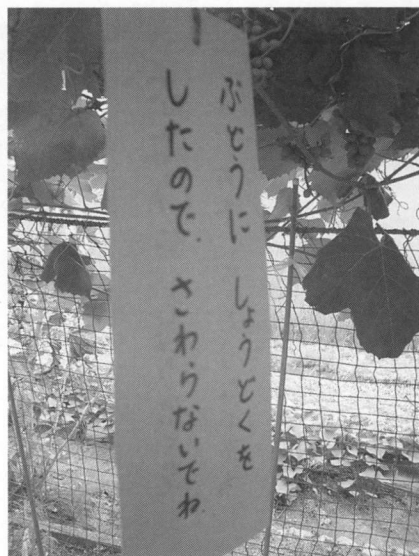 ぶどうに しょうどくを
したので、さわらないでね